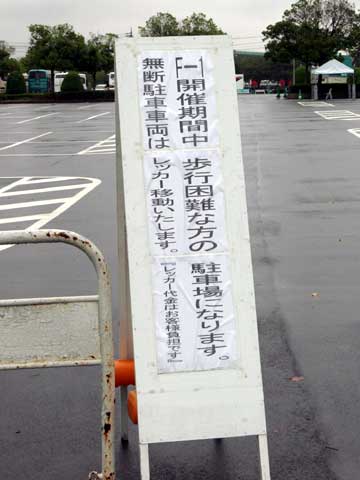 F-1開催期間中
歩行困難な方の
駐車場になります。
無断駐車車両は
レッカー移動いたします。
『レッカー代金はお客様負担です』